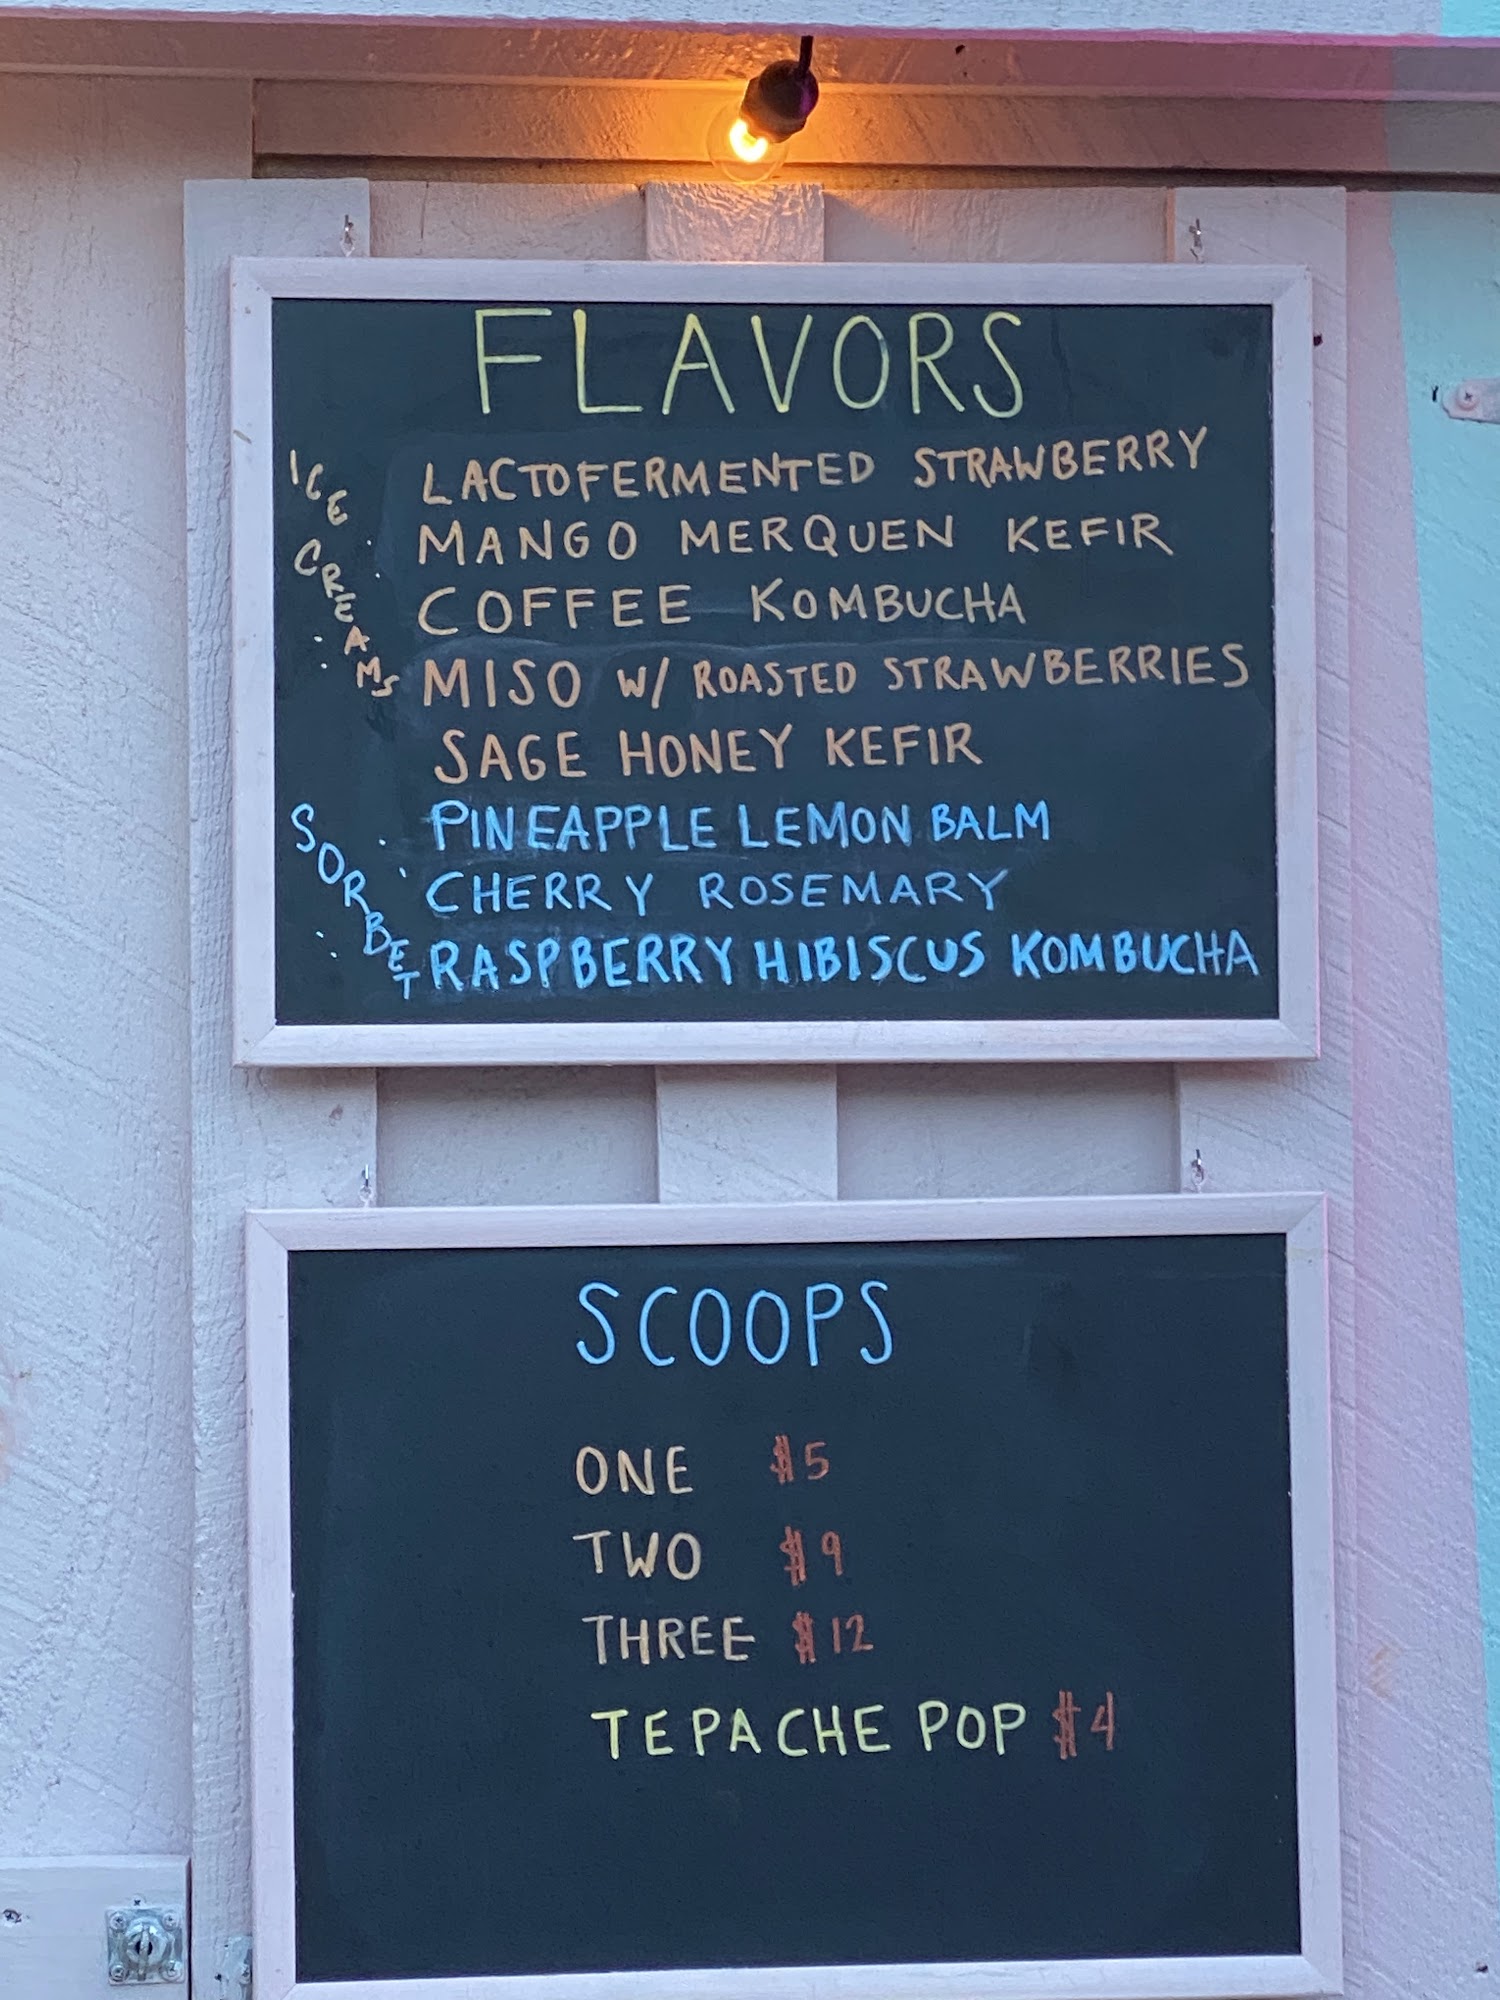 FLAVORS
ICE CREAMS
LACTOFERMENTED STRAWBERRY
MANGO MERQUEN KEFIR
COFFEE KOMBUCHA
MISO W/ ROASTED STRAWBERRIES
SAGE HONEY KEFIR
SORBET
PINEAPPLE LEMON BALM
CHERRY ROSEMARY
RASPBERRY HIBISCUS KOMBUCHA
SCOOPS
ONE $5
TWO $9
THREE $12
TEPACHE POP $4